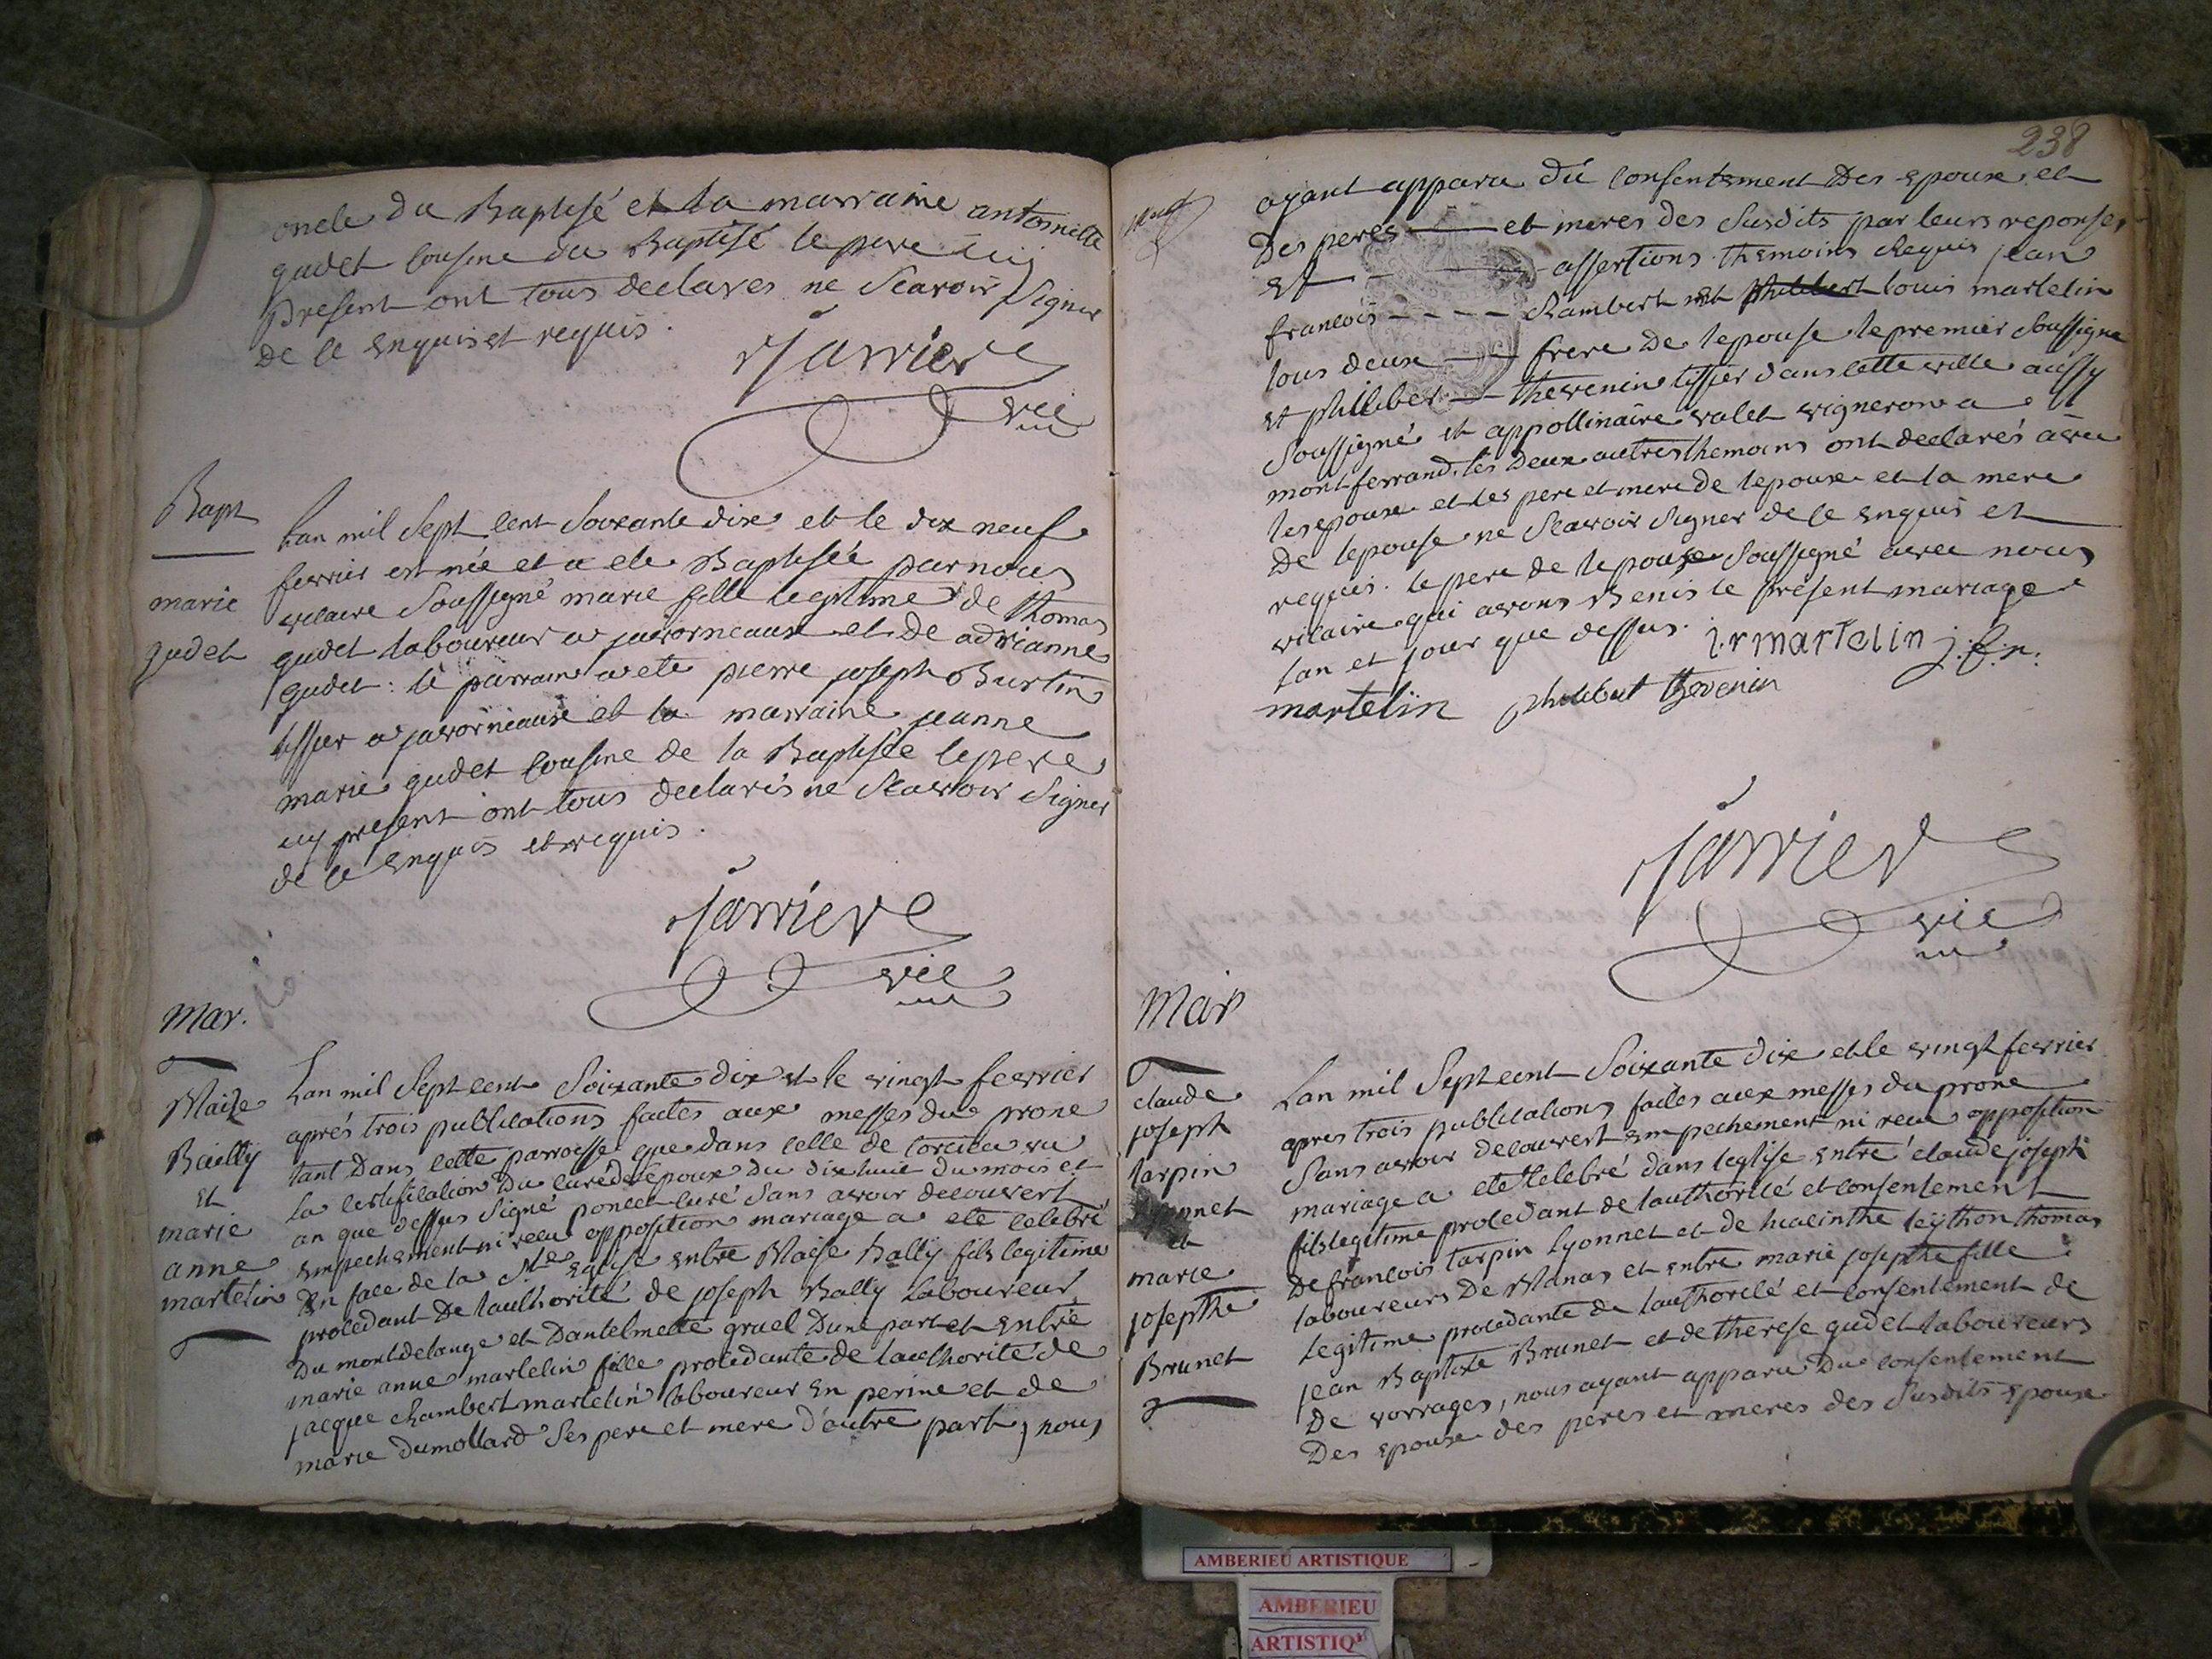 oncle du Baptisé et la marraine antoinette
gudet cousine du Baptisé le pere icy
present ont tous declares ne Scavoir Signer
de ce enquis et requis.
Jarriere
vic
Bapt
marie
gudet
Lan mil Sept cent Soixante dix et le dix neuf
fevrier est née et a ete Baptisée par nous
vicaire Soussigné marie fille legitime de thomas
gudet laboureur a javorneaux et de adrianne
gudet : le parrain a ete pierre joseph Burtin
tissier a javorneaux et la marraine jeanne
marie gudet cousine de la Baptisée le pere
icy present ont tous declarés ne Scavoir Signer
de ce enquis et requis.
Jarriere
vic
Mar.
Blaise
Bailly
et
marie
anne
martelin
Lan mil Sept cent Soixante dix et le vingt fevrier
aprés trois publications faites aux messes du prone
tant Dans cette parroisse que dans celle de torcieu vu
la certification Du curé de Lepoux Du dix huit du mois et
an que dessus Signé poncet curé Sans avoir decouvert
empechement ni recu opposition mariage a eté celebré
En face de la Ste Eglise entre Blaise Bally fils legitime
procedant De lauthorité de joseph Bally Laboureur
Du montdelange et Dantelmette gruel Dune part et entre
marie anne martelin fille procedante de lauthorité de
jacque chambert martelin laboureur en perine et de
marie dumollard Ses pere et mere d'autre part, nous
238
ayant apparu du consentement Des epoux et
Des peres et meres des Susdits par leurs reponses
et assertions themoins Requis jean
francois Rambert et louis martelin
tous deux frere De lepouse le premier Soussigné
et philibert thevenin tissier dans cette ville aussy
Soussigné et appollinaire valet vigneron a
montferrand, les Deux autres themoins ont declarés avec
les epoux et les pere et mere de lepoux et la mere
De lepouse ne Scavoir Signer de ce enquis et
requis. le pere de lepouse Soussigné avec nous
vicaire qui avons Benis le présent mariage
lan et jour que dessus. i.r martelin j.f.r.
martelin philibert thevenin
Jarriere
vic
Mar
claude
joseph
tarpin
et
marie
josepthe
Brunet
Lan mil Sept cent Soixante dix et le vingt fevrier
apres trois publications faites aux messes du prone
Sans avoir decouvert empechement ni recu opposition
mariage a eté celebré dans leglise entre claude joseph
fils legitime procedant de lauthorité et consentement
De francois tarpin Lyonnet et de hiacinthe leython thomas
laboureurs De Blanas et entre marie josepthe fille
Legitime procedante de lauthorité et consentement de
jean Baptiste Brunet et de therese gudet laboureurs
De vorrages, nous ayant apparu Du consentement
Des epoux des peres et meres des Susdits epoux
AMBERIEU ARTISTIQUE
AMBERIEU
ARTISTIQ